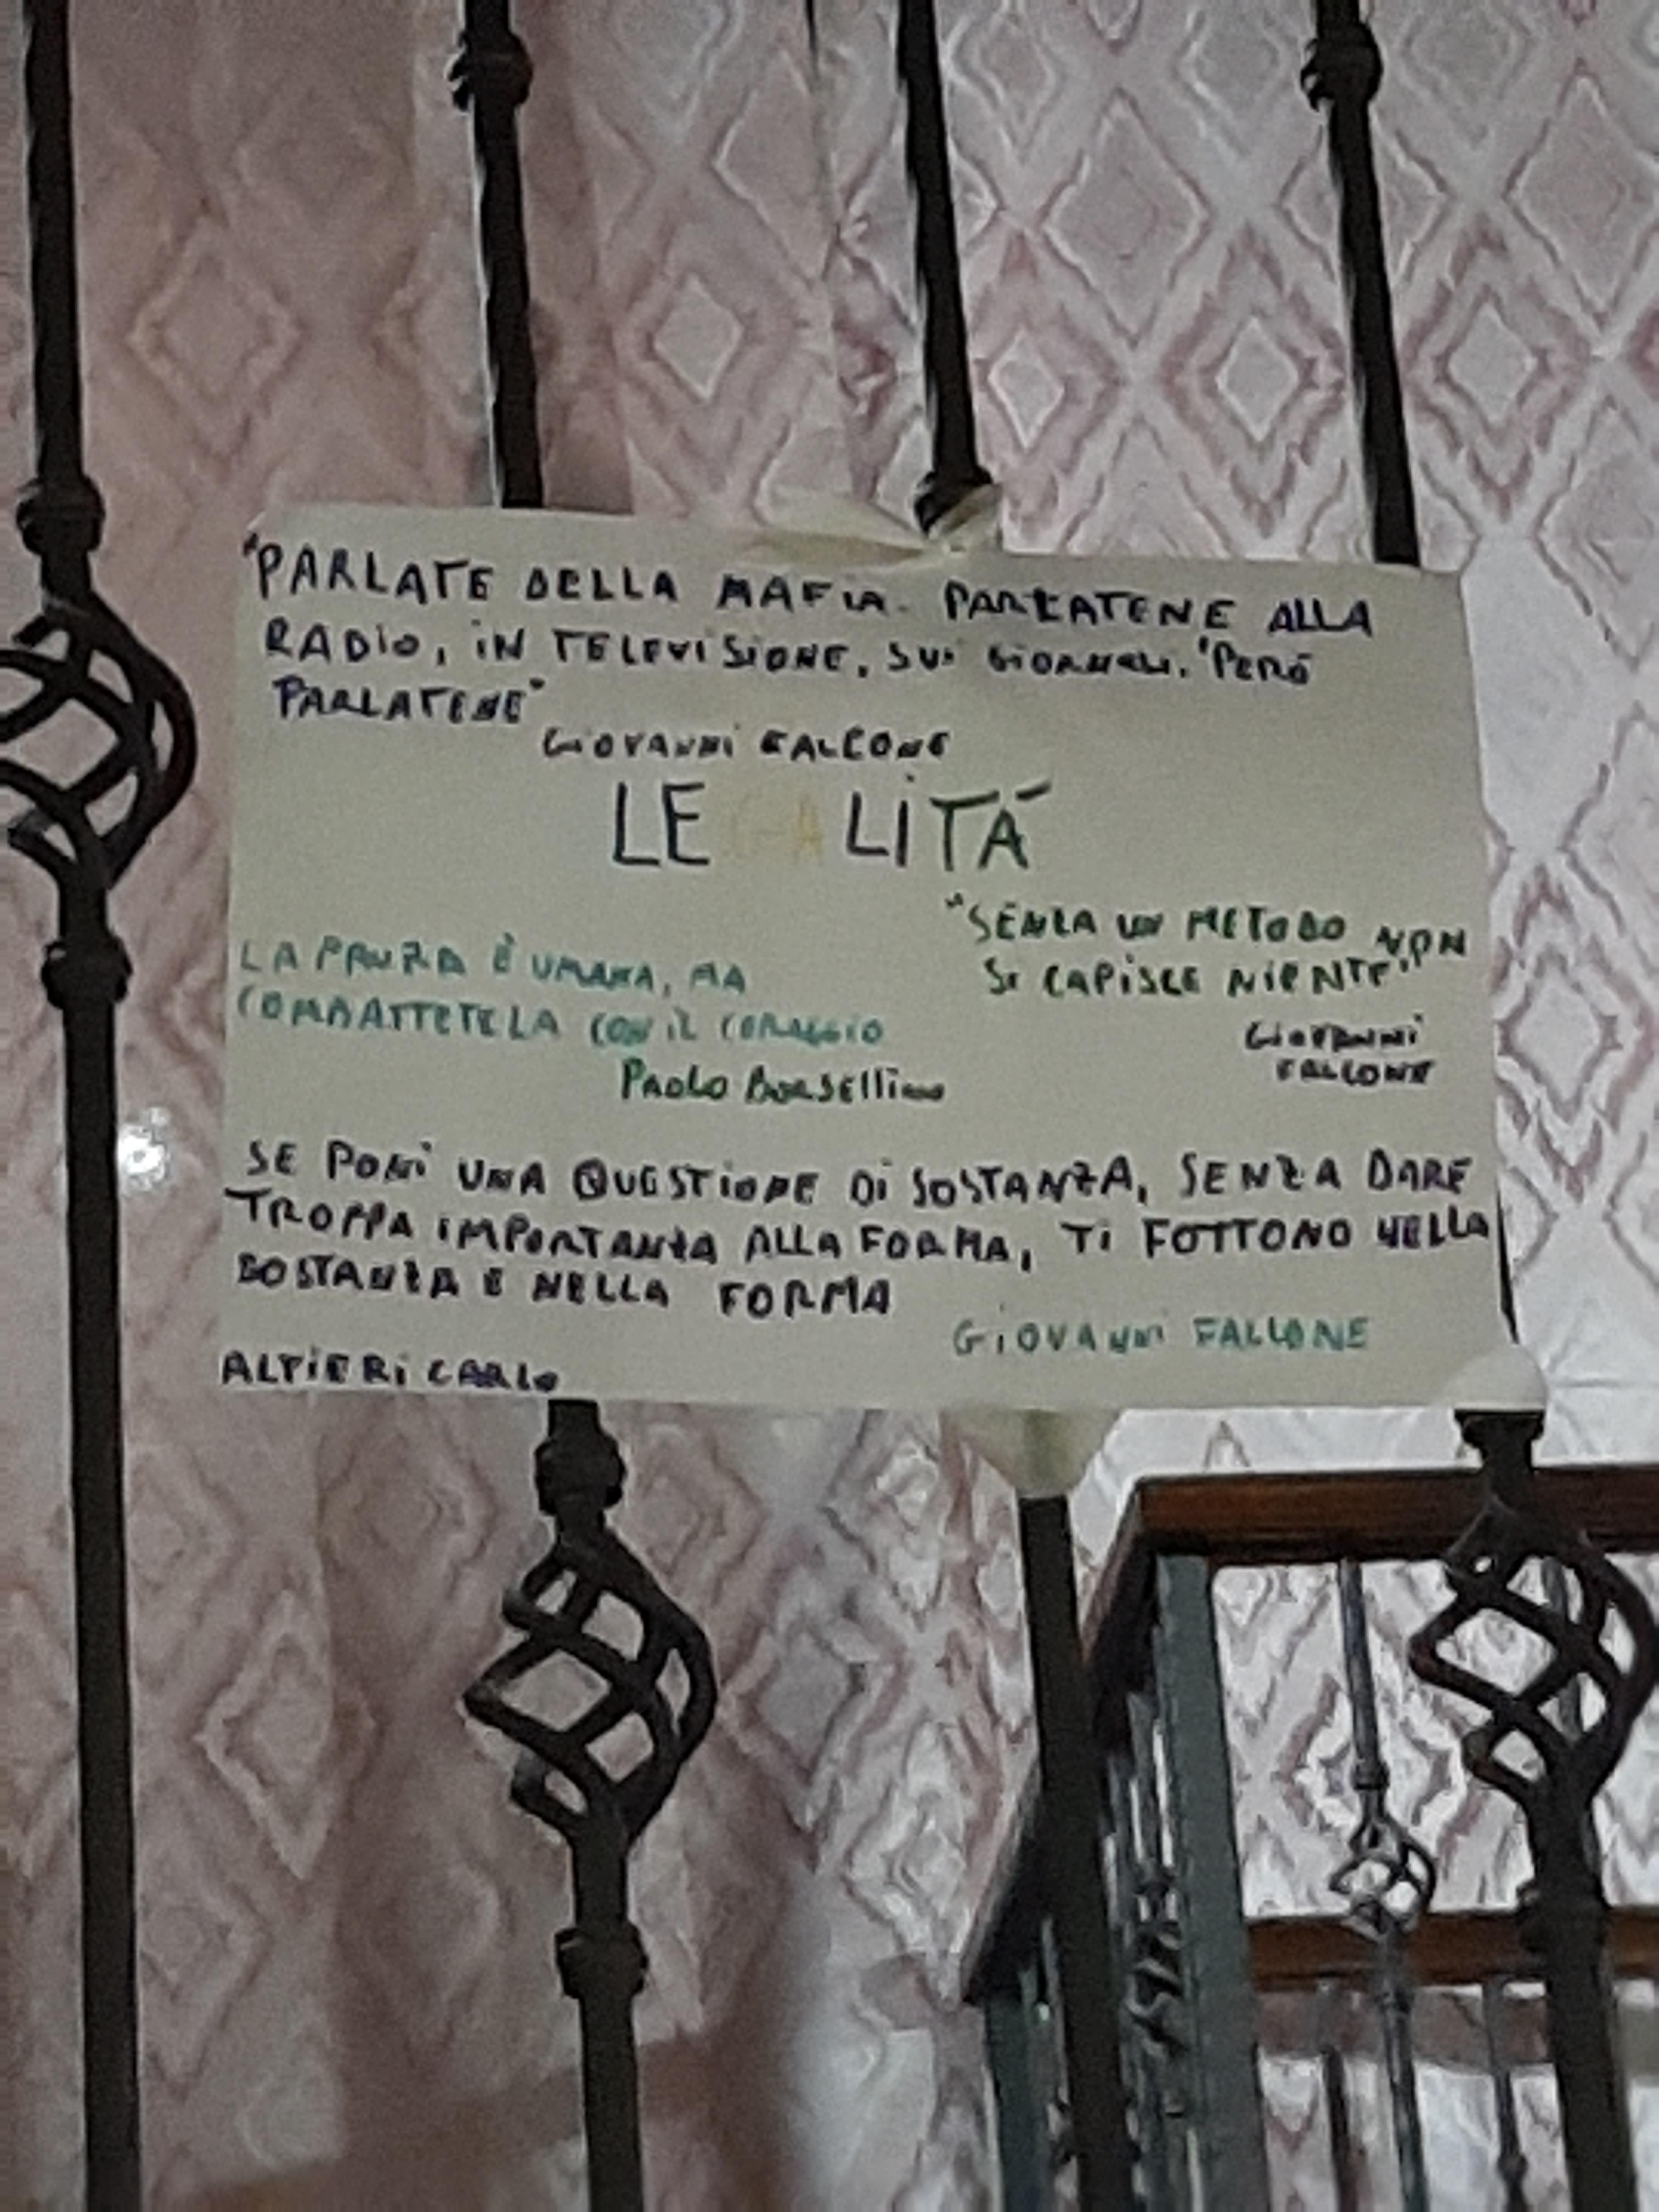 "PARLATE DELLA MAFIA. PARLATENE ALLA
RADIO, IN TELEVISIONE, SUI GIORNALI. "PERÓ
PARLATENE"
GIOVANNI FALCONE
LEGALITÁ
"SENZA UN METODO NON
SI CAPISCE NIENTE"
GIOVANNI
FALCONE
LA PAURA È UMANA, MA
COMBATTETELA CON IL CORAGGIO
PAOLO BORSELLINO
SE PONI UNA QUESTIONE DI SOSTANZA, SENZA DARE
TROPPA IMPORTANZA ALLA FORMA, TI FOTTONO NELLA
SOSTANZA E NELLA FORMA
GIOVANNI FALCONE
ALTIERI CARLO